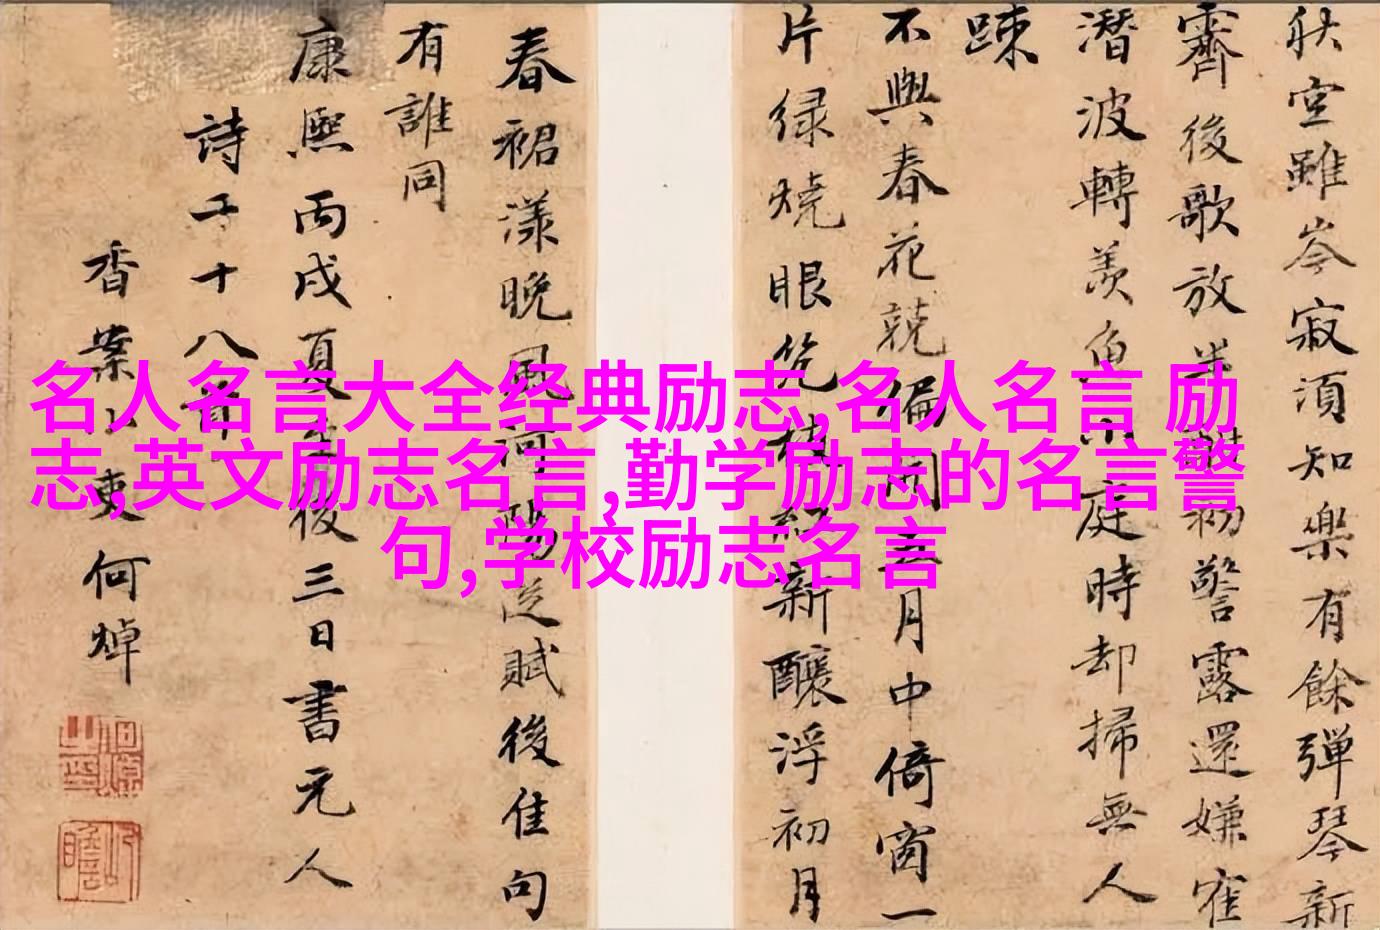 秋空雖岑寂須知樂有餘彈琴新
霽後歌放半酣初警露還嫌隺
潛波轉羨魚小庭時却掃無人
踈
不與春花競偏開五月中倚窗一
片緑燒眼幾枝紅新釀浮初月
春裙漾晚風河陽從賦後佳句
有誰同
康熙丙戌夏至後三日書元人
詩二十八首
香案小吏何焯
名人名言大全经典励志,名人名言 励
志,英文励志名言,勤学励志的名言警
句,学校励志名言